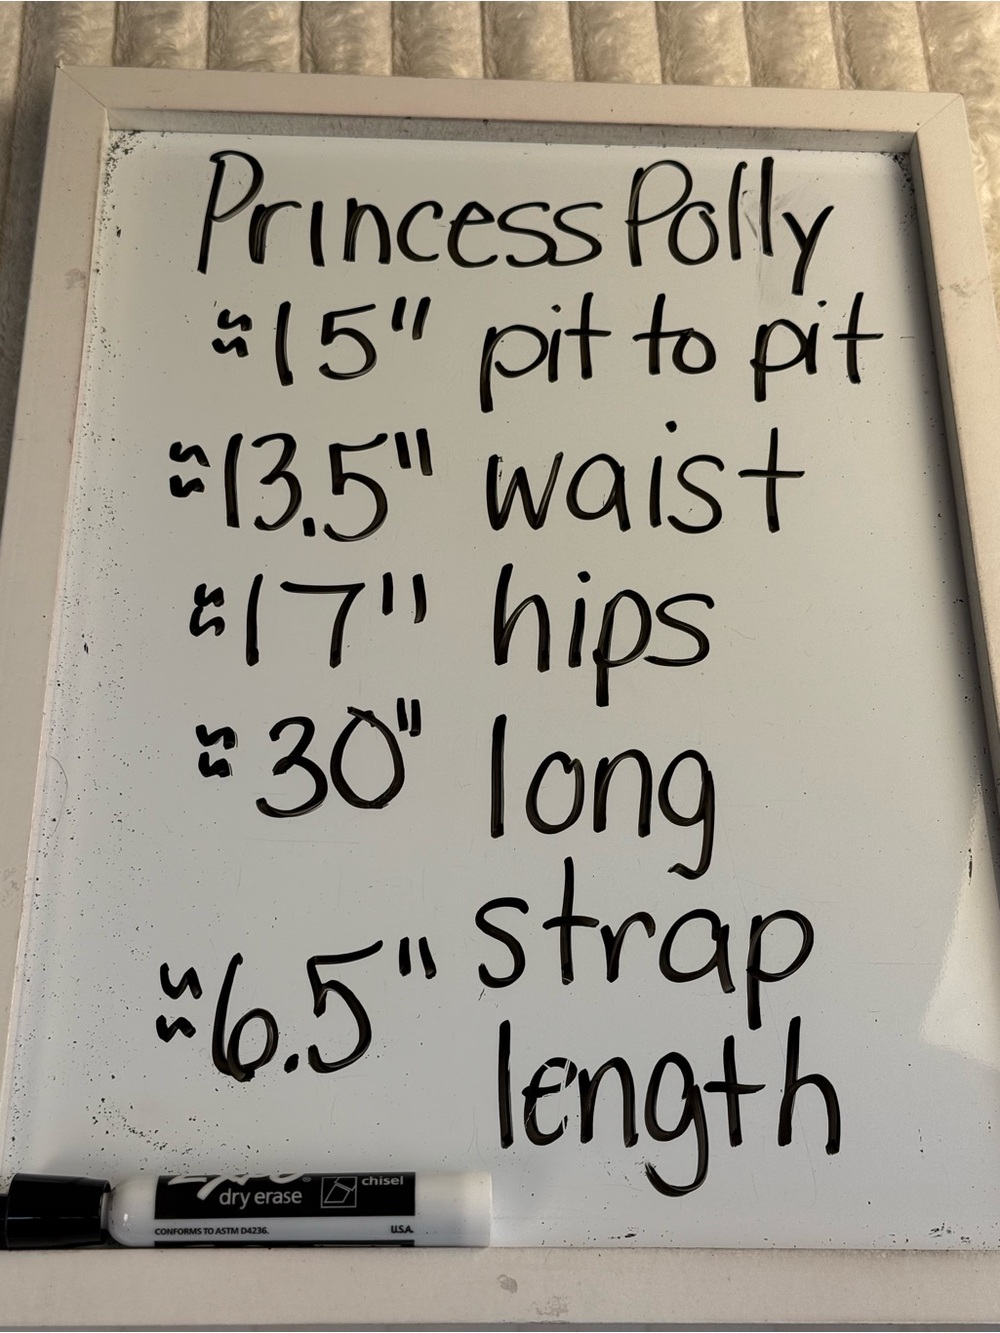 Princess Polly
≈15" pit to pit
≈13.5" waist
≈17" hips
≈30" long
≈6.5" strap
length
dry erase
chisel
CONFORMS TO ASTM D4236.
U.S.A.